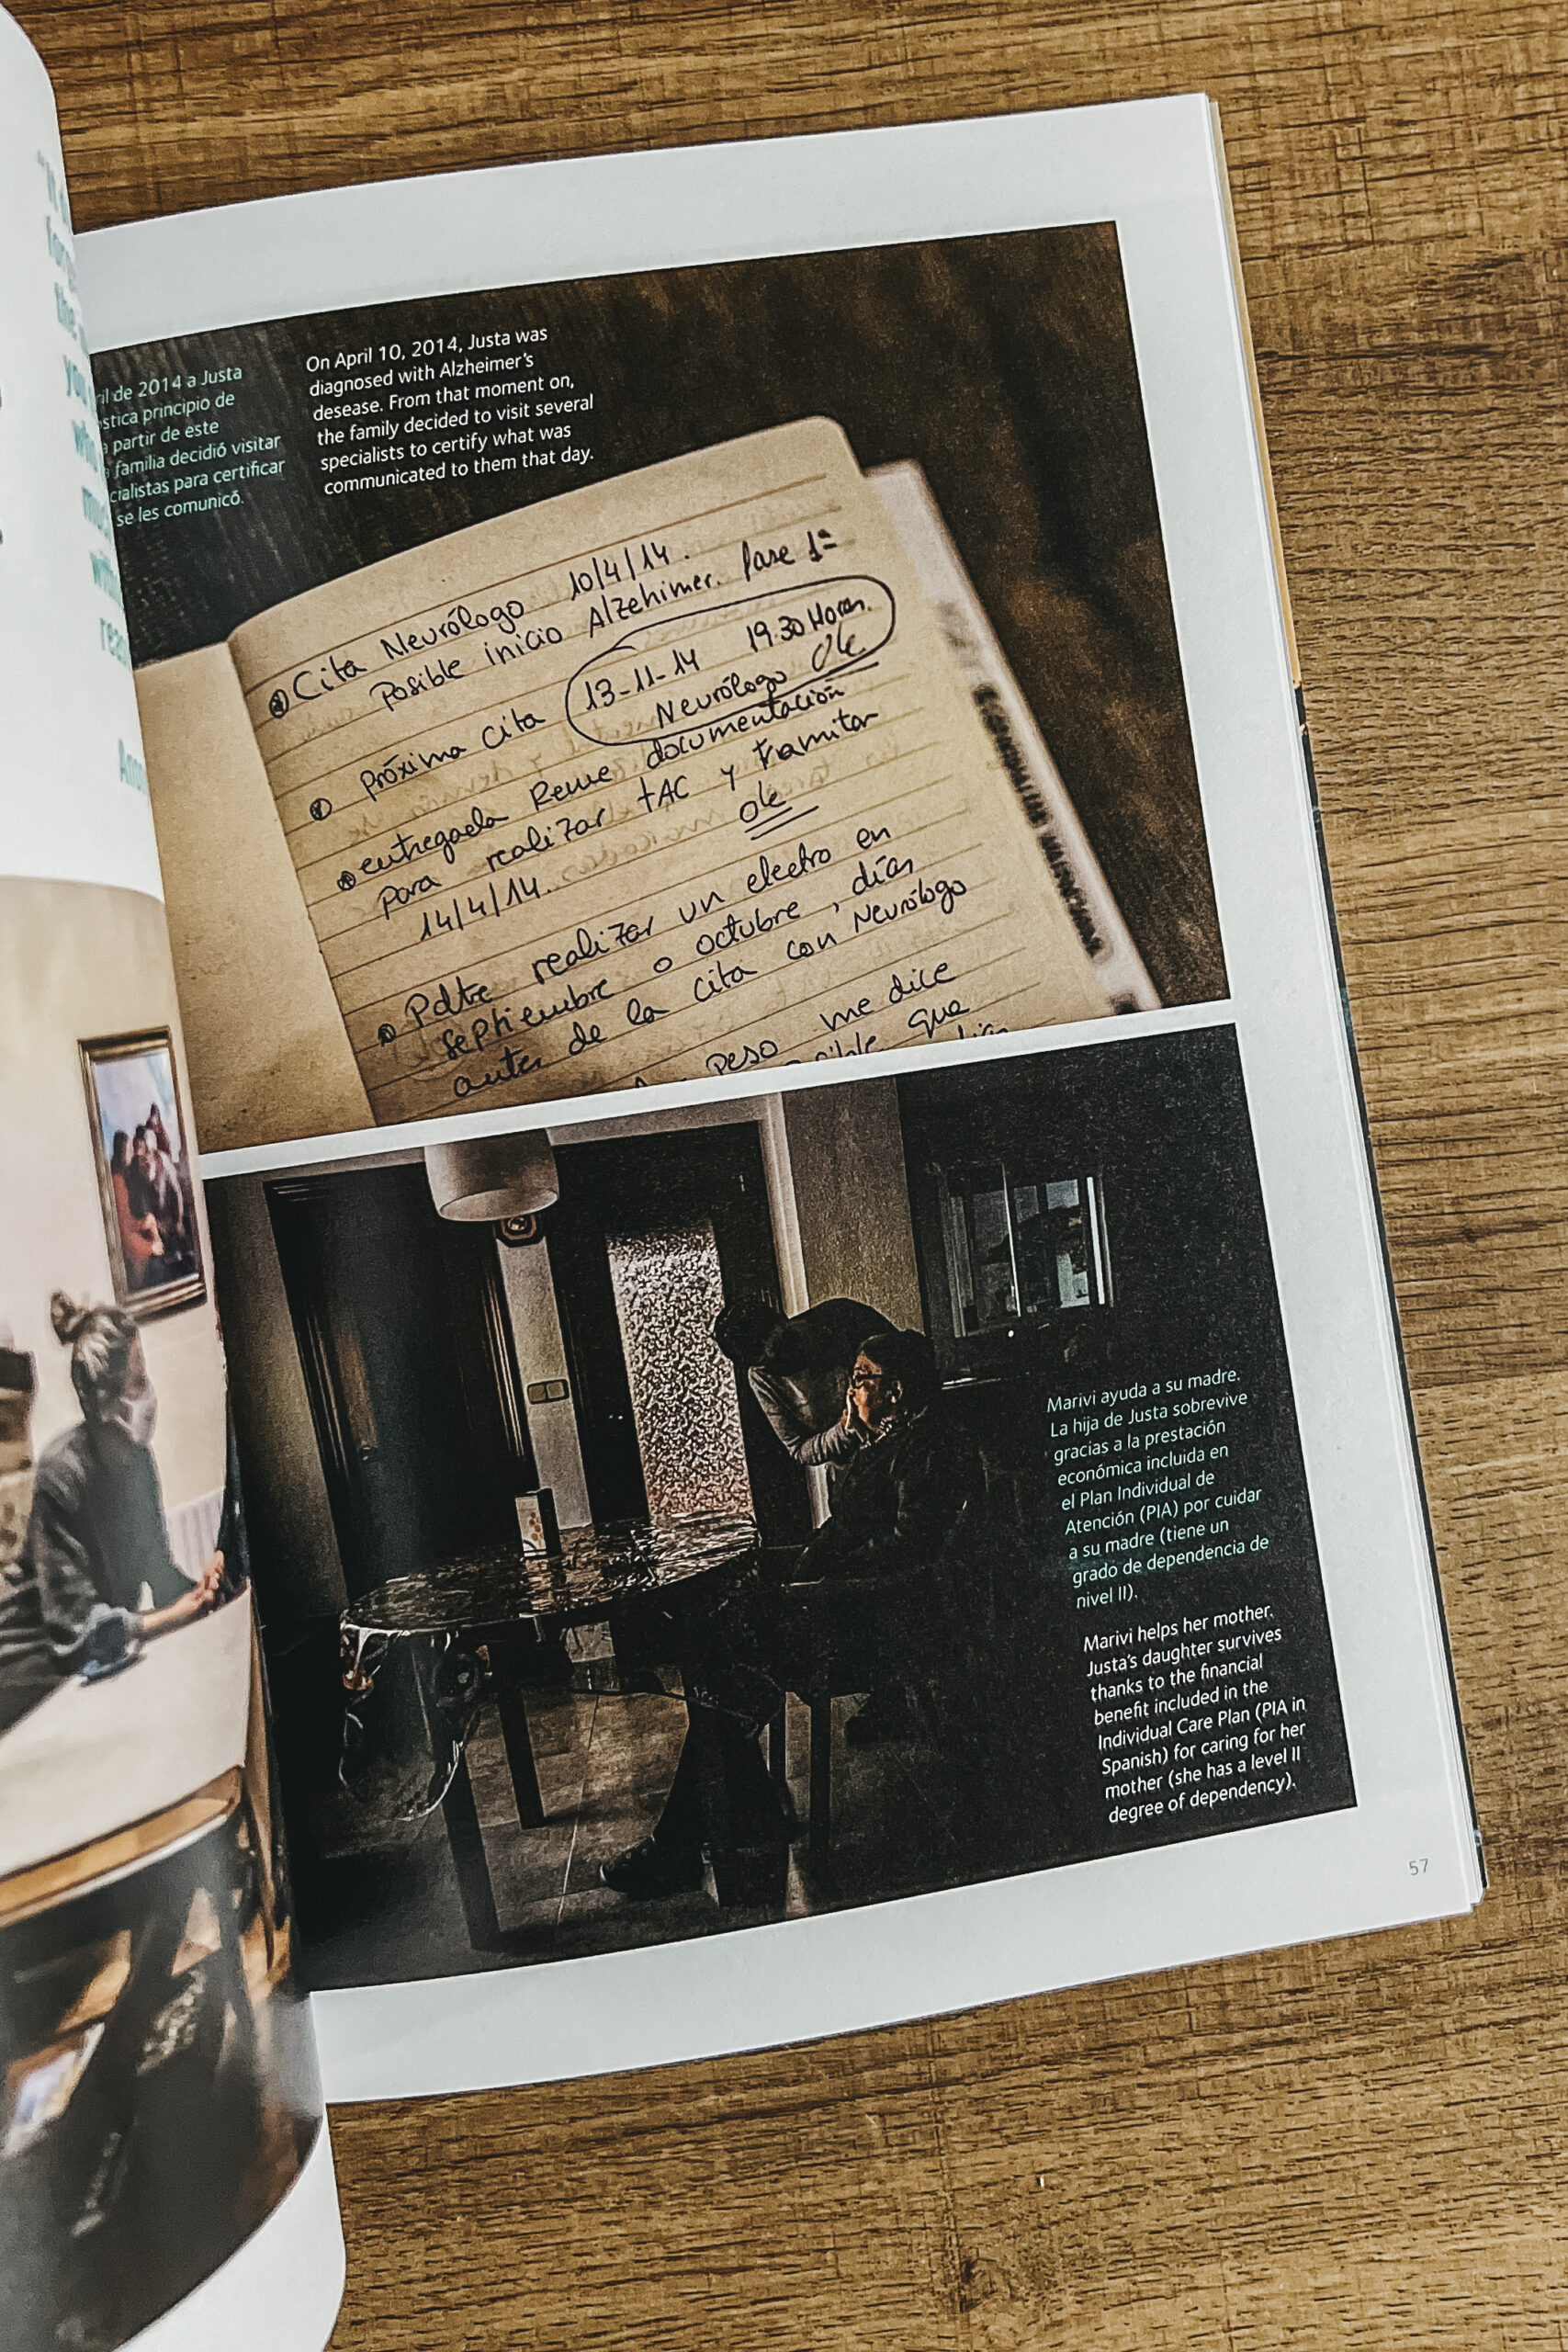 ril de 2014 a Justa
stica principio de
partir de este
familia decidió visitar
cialistas para certificar
se les comunicó.
On April 10, 2014, Justa was
diagnosed with Alzheimer's
desease. From that moment on,
the family decided to visit several
specialists to certify what was
communicated to them that day.
Cita Neurólogo 10/4/14.
Posible inicio Alzehimer. fase 1ª
Próxima cita 13-11-14 19.30 Horas.
Neurólogo Ok
entregada Reme documentación
para realizar TAC y tramitar
14/4/14. Ok
Pdte realizar un electro en
septiembre o octubre, días
antes de la cita con Neurólogo
peso me dice
que
Marivi ayuda a su madre.
La hija de Justa sobrevive
gracias a la prestación
económica incluida en
el Plan Individual de
Atención (PIA) por cuidar
a su madre (tiene un
grado de dependencia de
nivel II).
Marivi helps her mother.
Justa's daughter survives
thanks to the financial
benefit included in the
Individual Care Plan (PIA in
Spanish) for caring for her
mother (she has a level II
degree of dependency).
57